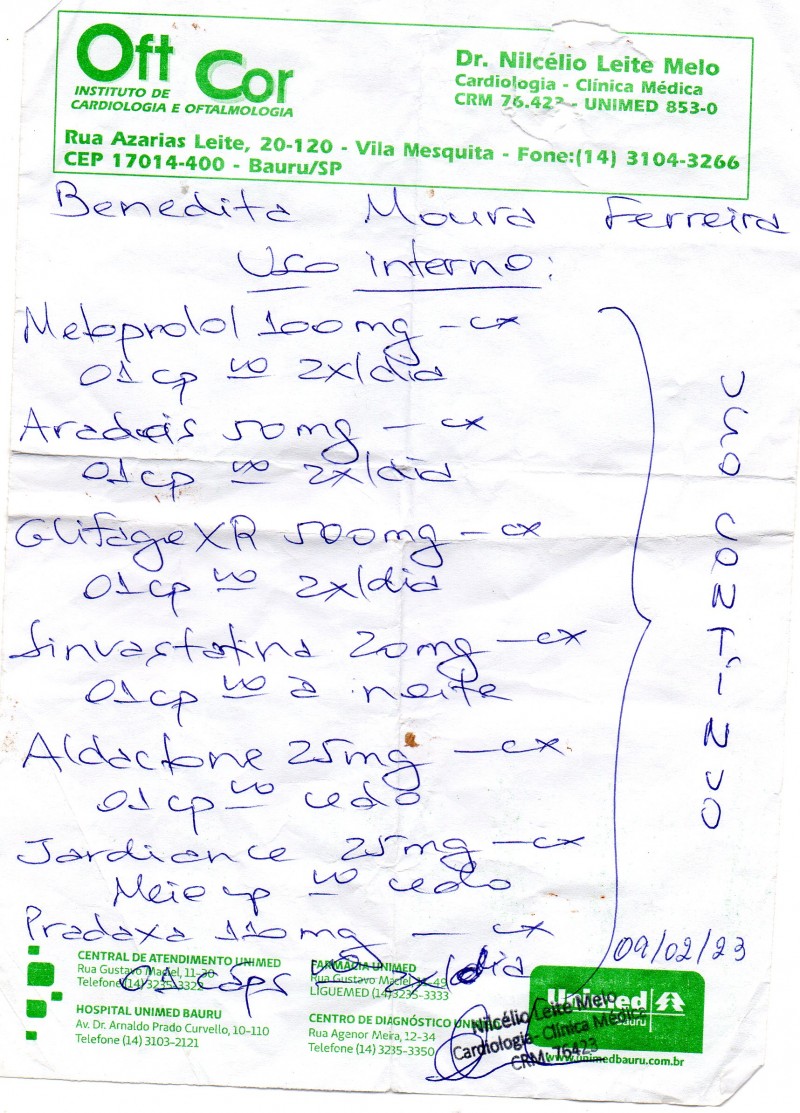 Oft Cor
INSTITUTO DE
CARDIOLOGIA E OFTALMOLOGIA
Dr. Nilcélio Leite Melo
Cardiologia - Clínica Médica
CRM 76.423 - UNIMED 853-0
Rua Azarias Leite, 20-120 - Vila Mesquita - Fone:(14) 3104-3266
CEP 17014-400 - Bauru/SP
Benedita Moura Ferreira
Uso interno:
Metoprolol 100mg - cx
01 cp vo 2x/dia
Aradois 50mg - cx
01 cp vo 2x/dia
Glifage XR 500mg - cx
01 cp vo 2x/dia
Sinvastatina 20mg - cx
01 cp vo a noite
Aldactone 25mg - cx
01 cp vo cedo
Jardiance 25mg - cx
Meio cp vo cedo
Pradaxa 110mg - cx
01 caps vo 2x/dia
USO CONTÍNUO
09/02/23
CENTRAL DE ATENDIMENTO UNIMED
Rua Gustavo Maciel, 11-30
Telefone (14) 3235-3322
HOSPITAL UNIMED BAURU
Av. Dr. Arnaldo Prado Curvello, 10-110
Telefone (14) 3103-2121
FARMÁCIA UNIMED
Rua Gustavo Maciel, 11-49
LIGUEMED (14) 3235-3333
CENTRO DE DIAGNÓSTICO UNIMED
Rua Agenor Meira, 12-34
Telefone (14) 3235-3350
Unimed
Bauru
www.unimedbauru.com.br
Nilcélio Leite Melo
Cardiologia - Clínica Médica
CRM 76423